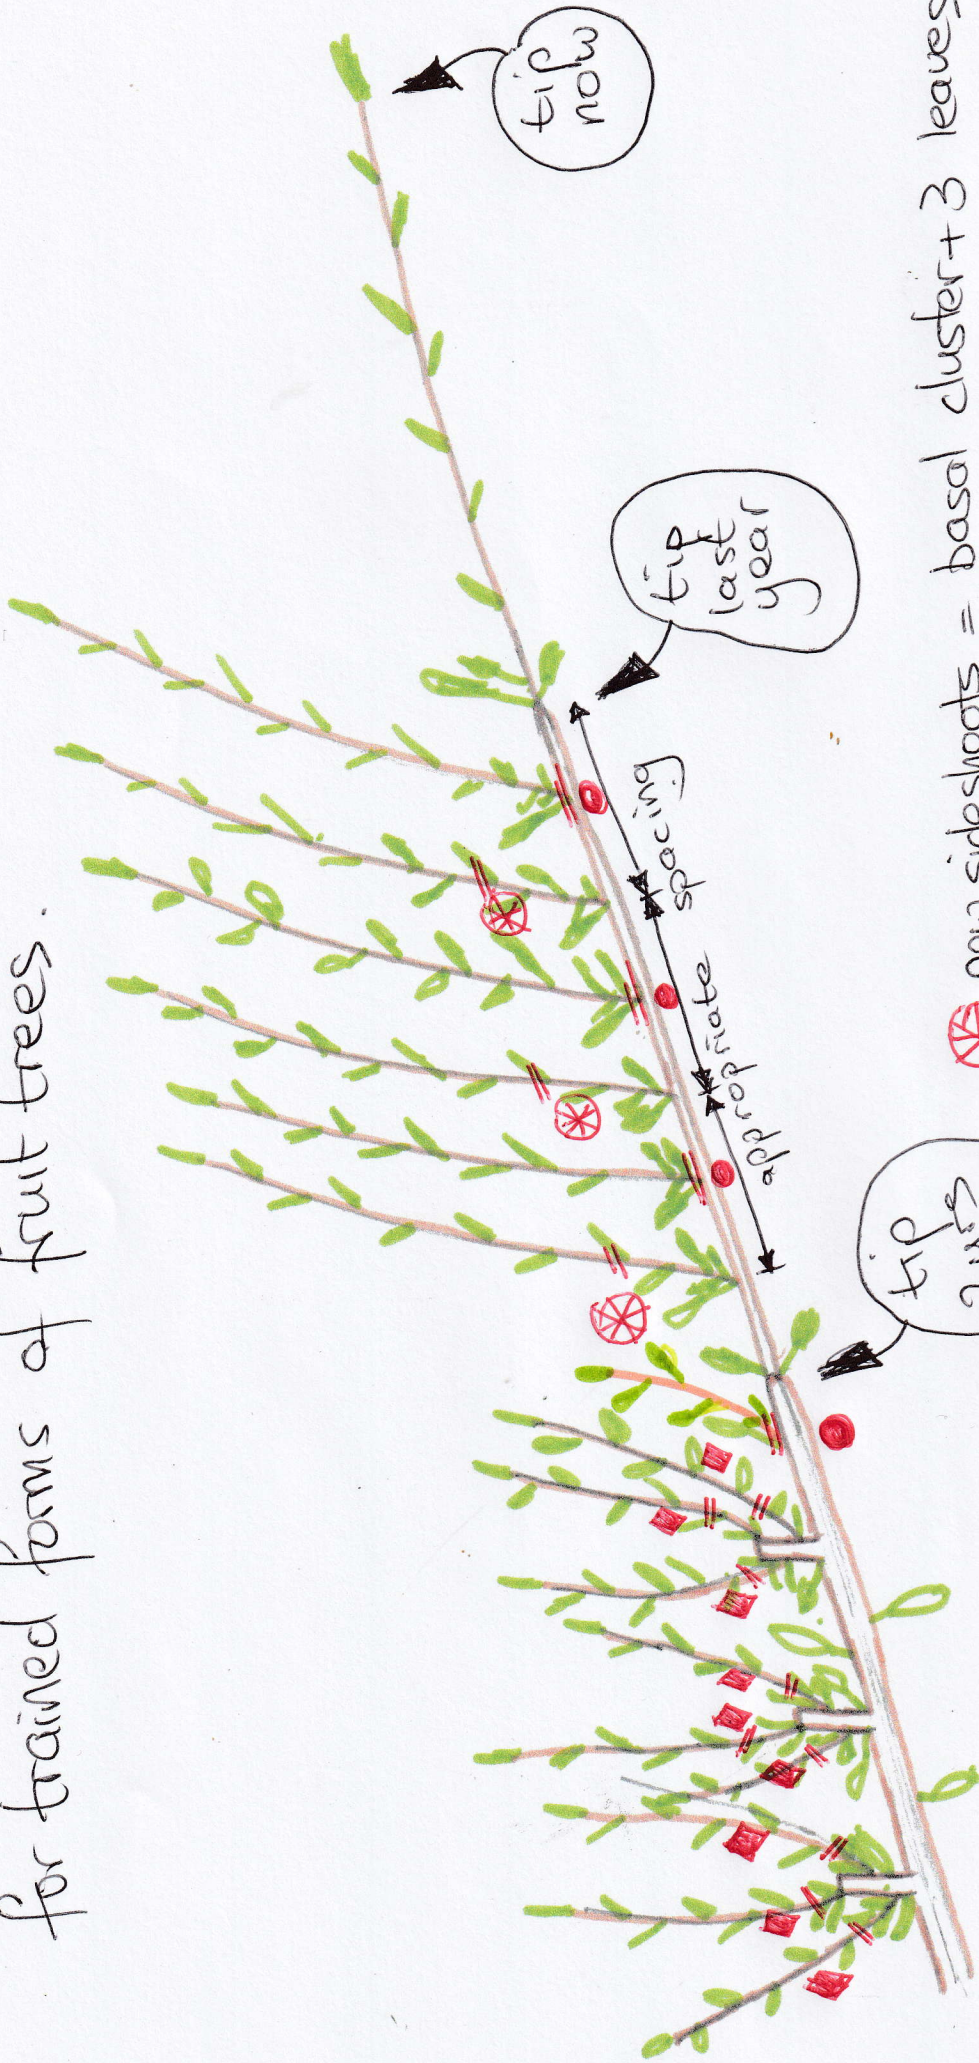 for trained forms of fruit trees.
tip
now
tip
last
year
appropriate spacing
tip
new sideshoots = basal cluster + 3 leaves